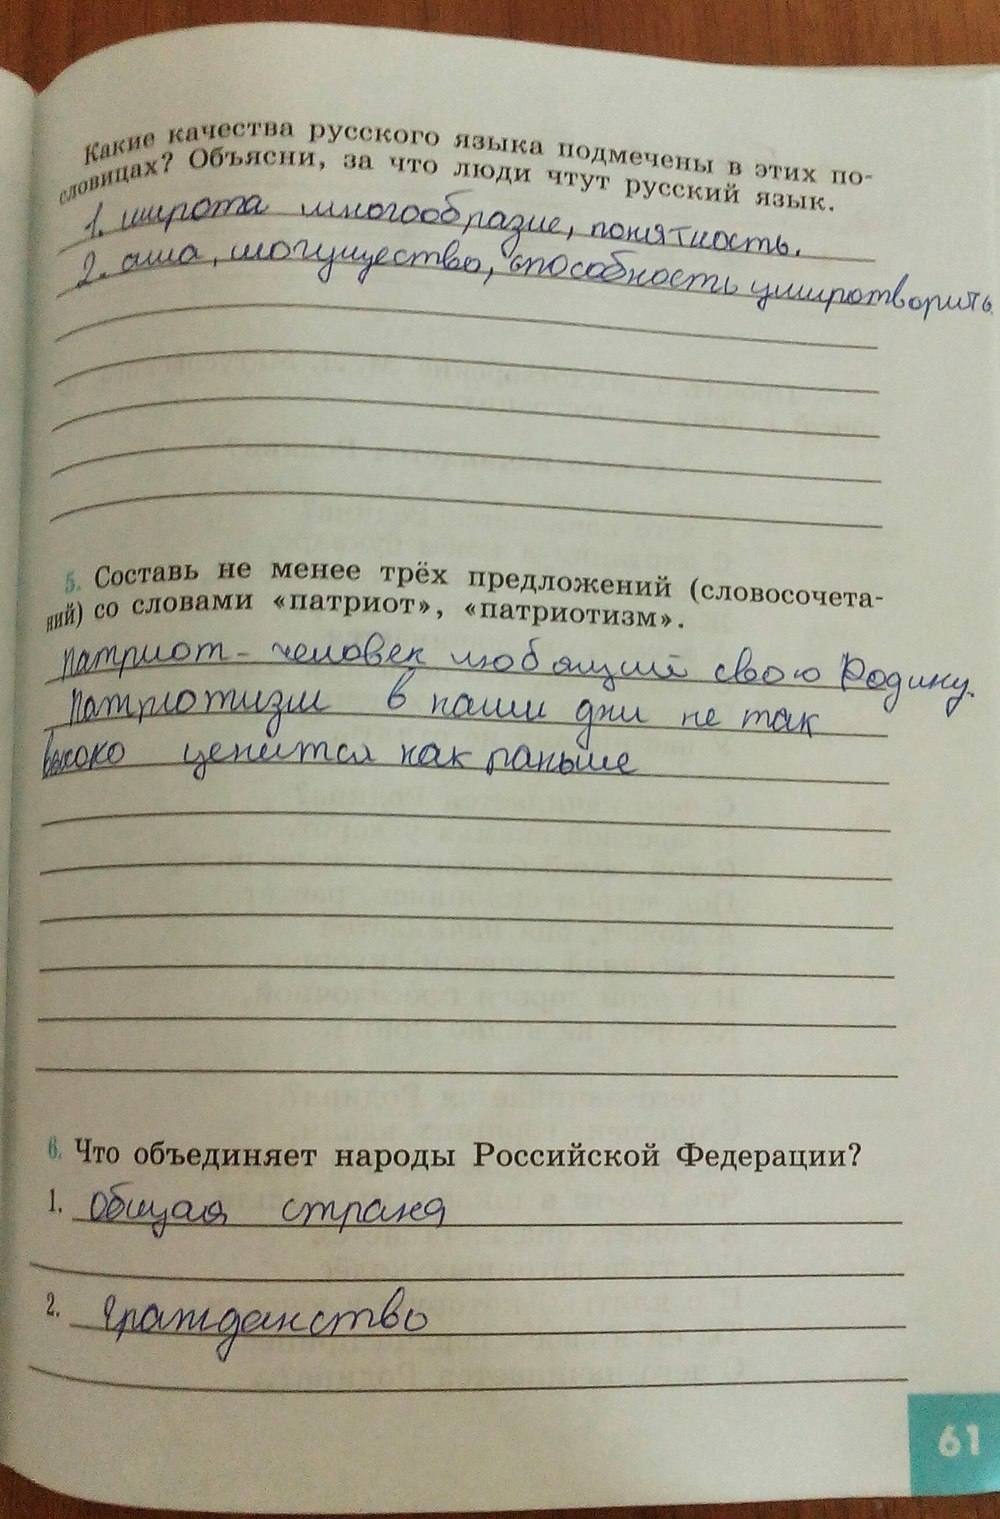 Какие качества русского языка подмечены в этих по-
словицах? Объясни, за что люди чтут русский язык.
1. широта многообразие, понятность.
2. сила, могущество, способность умиротворить.
5. Составь не менее трёх предложений (словосочета-
ний) со словами «патриот», «патриотизм».
патриот - человек любящий свою Родину.
Патриотизм в наши дни не так
высоко ценится как раньше
6. Что объединяет народы Российской Федерации?
1. общая страна
2. гражданство
61